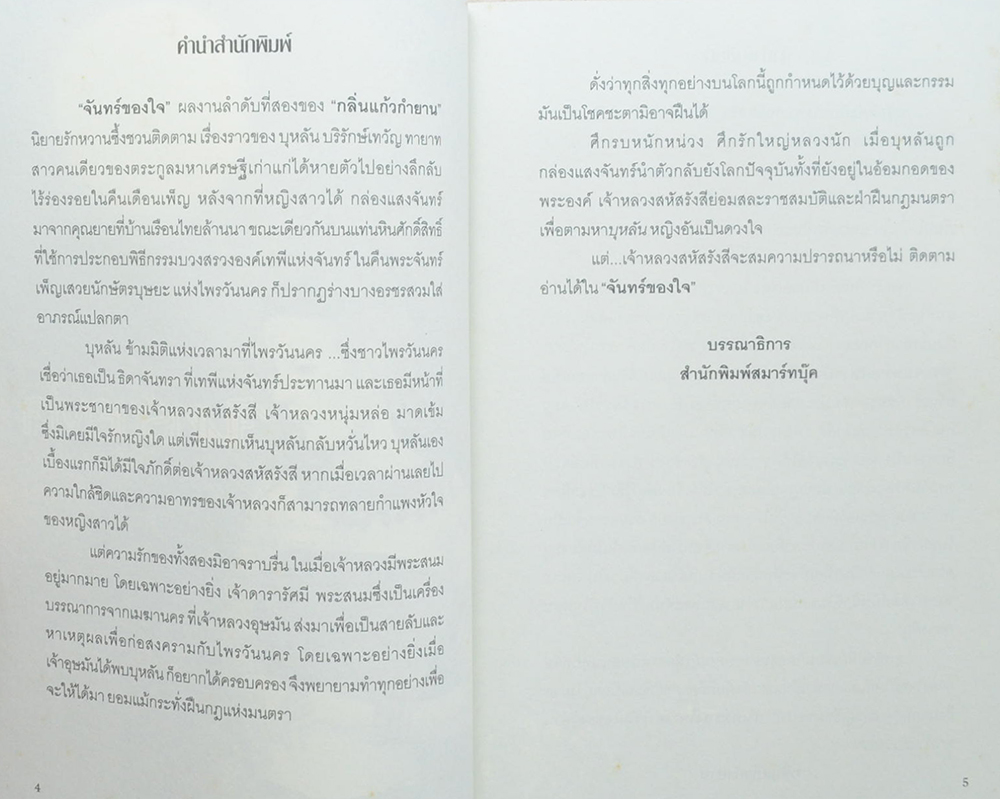 คำนำสำนักพิมพ์
"จันทร์ของใจ" ผลงานลำดับที่สองของ "กลิ่นแก้วกำยาน"
นิยายรักหวานซึ้งชวนติดตาม เรื่องราวของ บุหลัน บริรักษ์เทวัญ ทายาท
สาวคนเดียวของตระกูลมหาเศรษฐีเก่าแก่ได้หายตัวไปอย่างลึกลับ
ไร้ร่องรอยในคืนเดือนเพ็ญ หลังจากที่หญิงสาวได้ กล่องแสงจันทร์
มาจากคุณยายที่บ้านเรือนไทยล้านนา ขณะเดียวกันบนแท่นหินศักดิ์สิทธิ์
ที่ใช้การประกอบพิธีกรรมบวงสรวงองค์เทพีแห่งจันทร์ ในคืนพระจันทร์
เพ็ญเสวยนักษัตรบุษยะ แห่งไพรวันนคร ก็ปรากฏร่างบางอรชรสวมใส่
อาภรณ์แปลกตา
บุหลัน ข้ามมิติแห่งเวลามาที่ไพรวันนคร ...ซึ่งชาวไพรวันนคร
เชื่อว่าเธอเป็น ธิดาจันทรา ที่เทพีแห่งจันทร์ประทานมา และเธอมีหน้าที่
เป็นพระชายาของเจ้าหลวงสหัสรังสี เจ้าหลวงหนุ่มหล่อ มาดเข้ม
ซึ่งมิเคยมีใจรักหญิงใด แต่เพียงแรกเห็นบุหลันกลับหวั่นไหว บุหลันเอง
เบื้องแรกก็มิได้มีใจภักดิ์ต่อเจ้าหลวงสหัสรังสี หากเมื่อเวลาผ่านเลยไป
ความใกล้ชิดและความอาทรของเจ้าหลวงก็สามารถทลายกำแพงหัวใจ
ของหญิงสาวได้
แต่ความรักของทั้งสองมิอาจราบรื่น ในเมื่อเจ้าหลวงมีพระสนม
อยู่มากมาย โดยเฉพาะอย่างยิ่ง เจ้าดารารัศมี พระสนมซึ่งเป็นเครื่อง
บรรณาการจากเมฆานคร ที่เจ้าหลวงอุษมัน ส่งมาเพื่อเป็นสายลับและ
หาเหตุผลเพื่อก่อสงครามกับไพรวันนคร โดยเฉพาะอย่างยิ่งเมื่อ
เจ้าอุษมันได้พบบุหลัน ก็อยากได้ครอบครอง จึงพยายามทำทุกอย่างเพื่อ
จะให้ได้มา ยอมแม้กระทั่งฝืนกฎแห่งมนตรา
4
ดั่งว่าทุกสิ่งทุกอย่างบนโลกนี้ถูกกำหนดไว้ด้วยบุญและกรรม
มันเป็นโชคชะตามิอาจฝืนได้
ศึกรบหนักหน่วง ศึกรักใหญ่หลวงนัก เมื่อบุหลันถูก
กล่องแสงจันทร์นำตัวกลับยังโลกปัจจุบันทั้งที่ยังอยู่ในอ้อมกอดของ
พระองค์ เจ้าหลวงสหัสรังสีย่อมสละราชสมบัติและฝ่าฝืนกฎมนตรา
เพื่อตามหาบุหลัน หญิงอันเป็นดวงใจ
แต่...เจ้าหลวงสหัสรังสีจะสมความปรารถนาหรือไม่ ติดตาม
อ่านได้ใน "จันทร์ของใจ"
บรรณาธิการ
สำนักพิมพ์สมาร์ทบุ๊ค
5